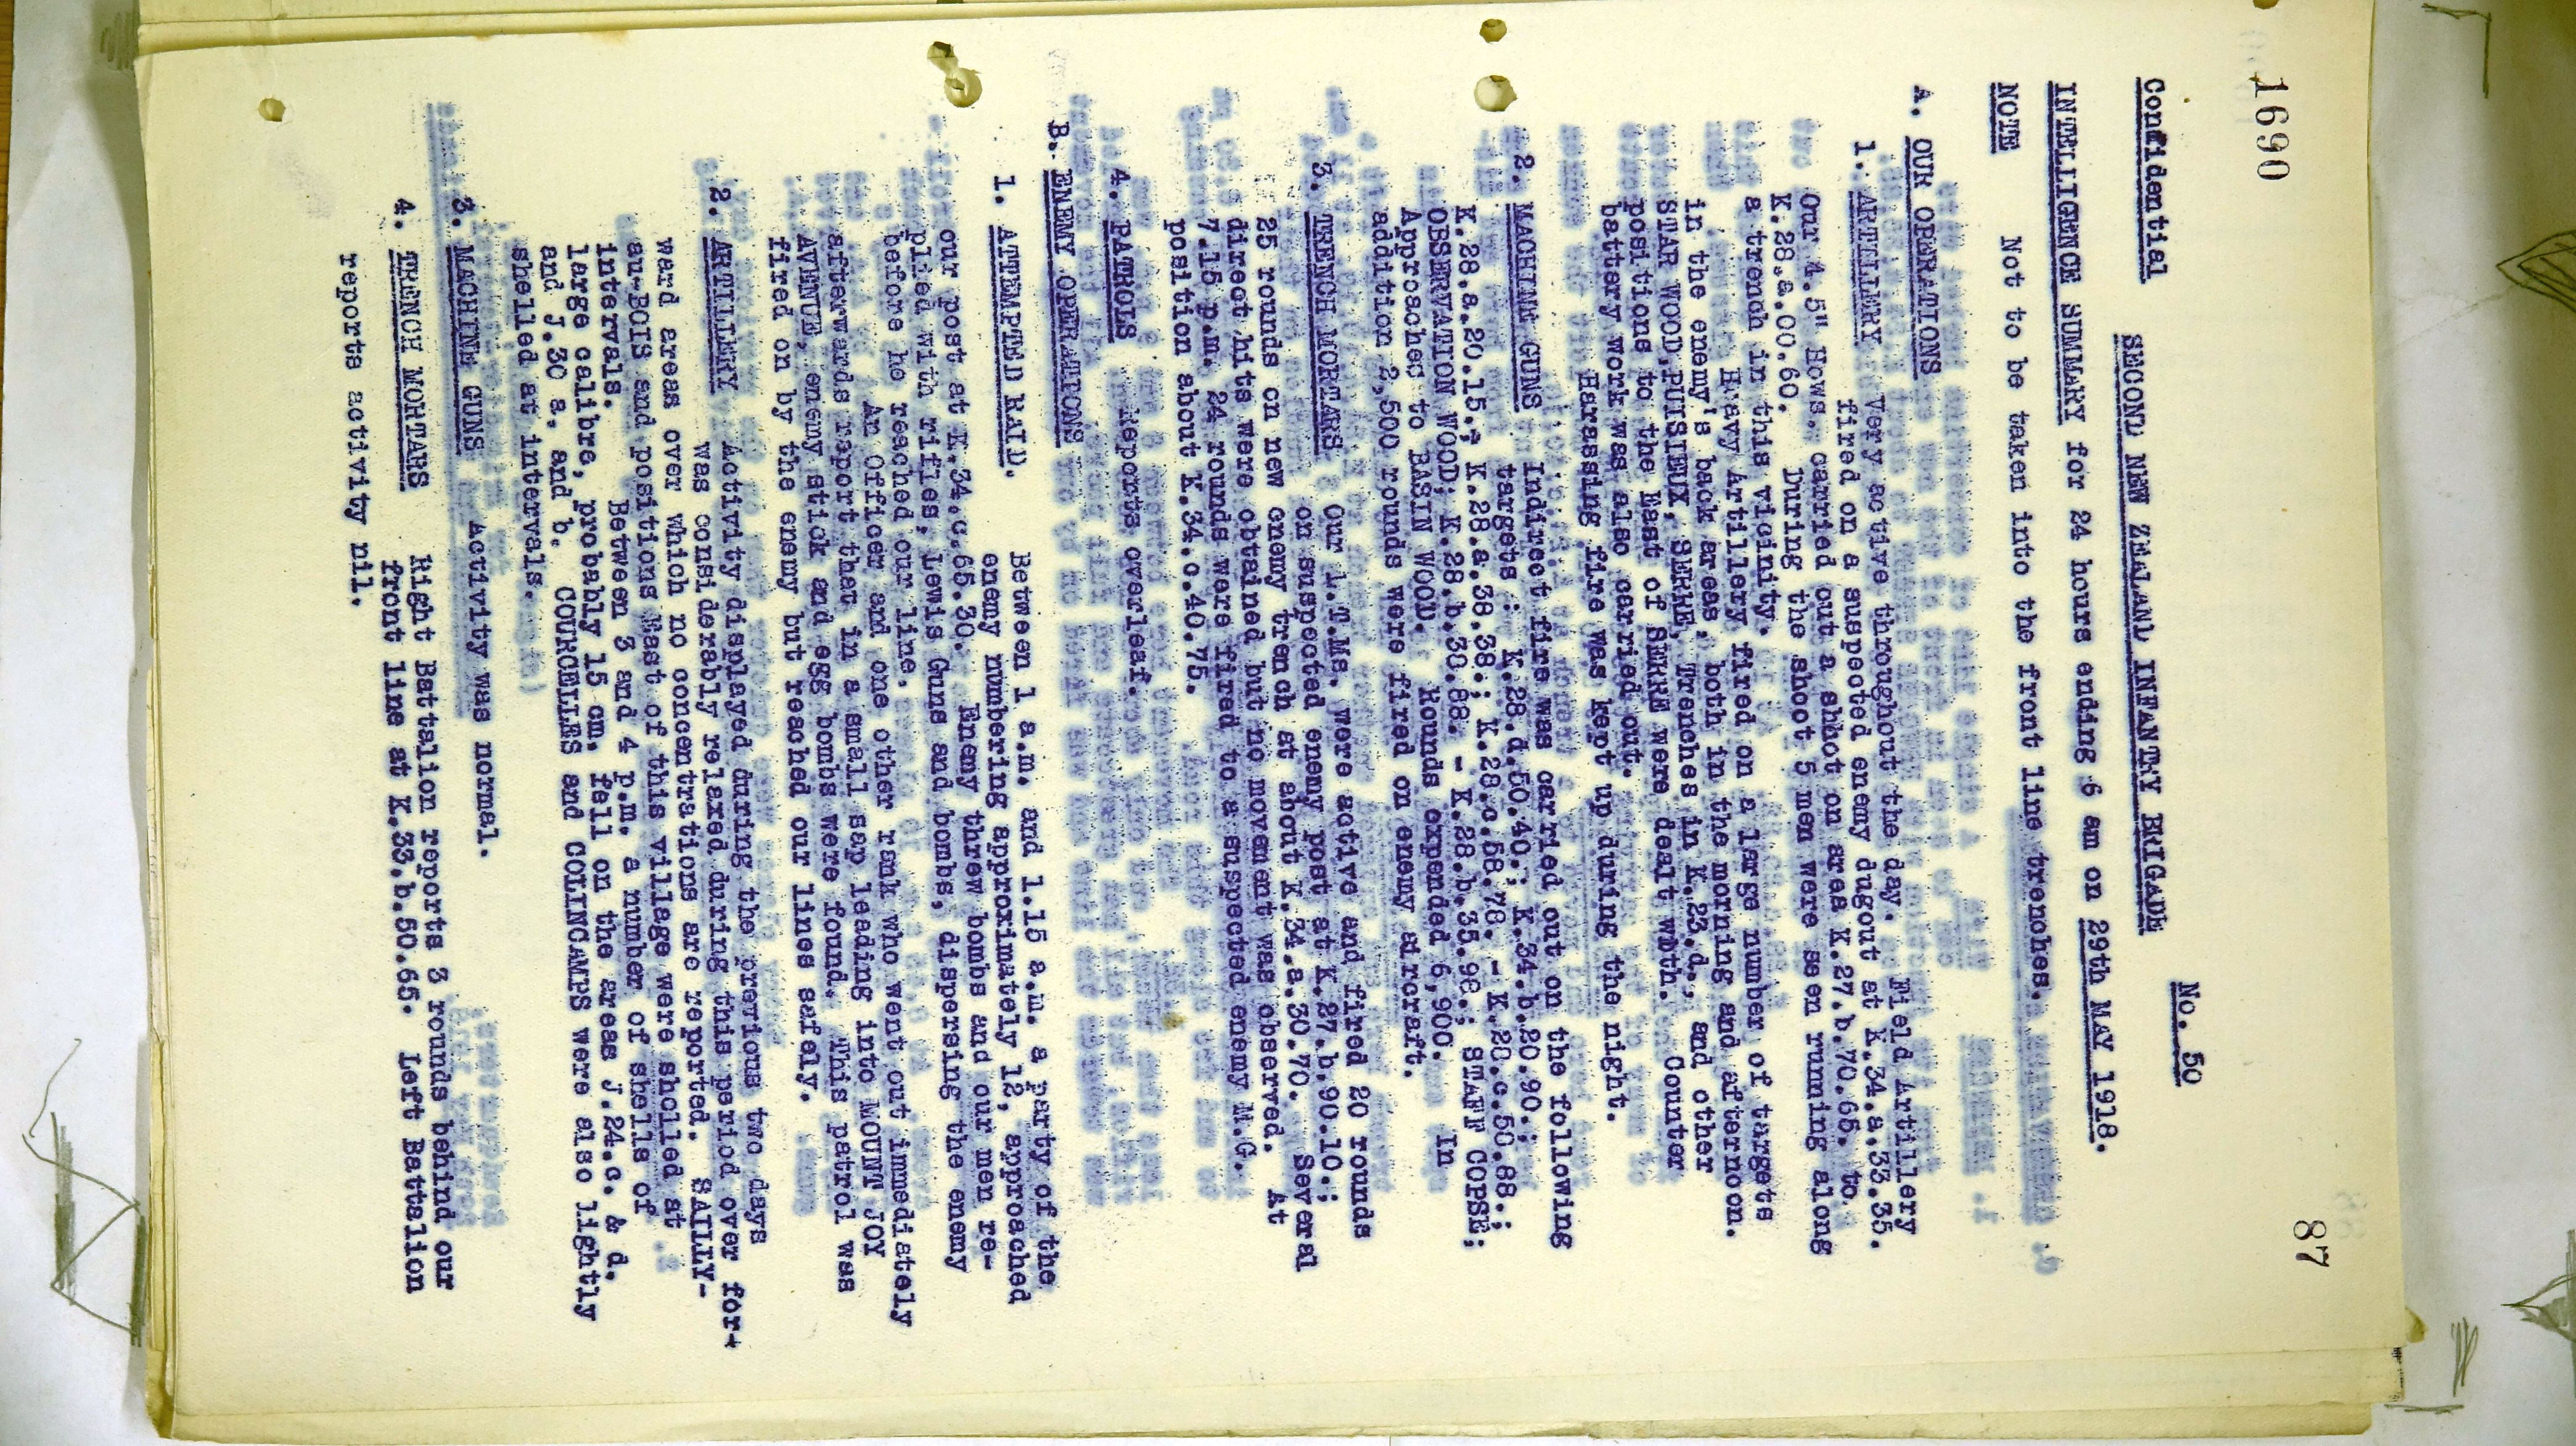 1690
87
Confidential
No. 50
SECOND NEW ZEALAND INFANTRY BRIGADE
INTELLIGENCE SUMMARY for 24 hours ending 6 am on 29th MAY 1918.
NOTE Not to be taken into the front line trenches.
A. OUR OPERATIONS
1. ARTILLERY Very active throughout the day. Field Artillery
fired on a suspected enemy dugout at K.34.a.33.35.
Our 4.5" Hows. carried out a shoot on area K.27.b.70.65. to
K.28.a.00.60. During the shoot 5 men were seen running along
a trench in this vicinity.
Heavy Artillery fired on a large number of targets
in the enemy's back areas, both in the morning and afternoon.
STAR WOOD, PUISIEUX, SERRE, Trenches in K.23.d., and other
positions to the East of SERRE were dealt with. Counter
battery work was also carried out.
Harassing fire was kept up during the night.
2. MACHINE GUNS Indirect fire was carried out on the following
targets : K.28.d.50.40.; K.34.b.20.90.;
K.28.a.20.15.; K.28.a.38.38.; K.28.c.58.78. - K.28.c.50.88.;
OBSERVATION WOOD; K.28.b.30.88. - K.28.b.35.98.; STAFF COPSE;
Approaches to BASIN WOOD. Rounds expended 6,900. In
addition 2,500 rounds were fired on enemy aircraft.
3. TRENCH MORTARS Our L.T.Ms. were active and fired 20 rounds
on suspected enemy post at K.27.b.90.10.;
25 rounds on new enemy trench at about K.34.a.30.70. Several
direct hits were obtained but no movement was observed. At
7.15 p.m. 24 rounds were fired to a suspected enemy M.G.
position about K.34.c.40.75.
4. PATROLS Reports overleaf.
B. ENEMY OPERATIONS
1. ATTEMPTED RAID. Between 1 a.m. and 1.15 a.m. a party of the
enemy numbering approximately 12, approached
our post at K.34.c.65.30. Enemy threw bombs and our men re-
plied with rifles, Lewis Guns and bombs, dispersing the enemy
before he reached our line.
An Officer and one other rank who went out immediately
afterwards report that in a small sap leading into MOUNT JOY
AVENUE, enemy stick and egg bombs were found. This patrol was
fired on by the enemy but reached our lines safely.
2. ARTILLERY Activity displayed during the previous two days
was considerably relaxed during this period over for-
ward areas over which no concentrations are reported. SAILLY-
au-BOIS and positions East of this village were shelled at
intervals. Between 3 and 4 p.m. a number of shells of
large calibre, probably 15 cm. fell on the areas J.24.c. & d.
and J.30 a. and b. COURCELLES and COLINCAMPS were also lightly
shelled at intervals.
3. MACHINE GUNS Activity was normal.
4. TRENCH MORTARS Right Battalion reports 3 rounds behind our
front line at K.33.b.50.65. Left Battalion
reports activity nil.